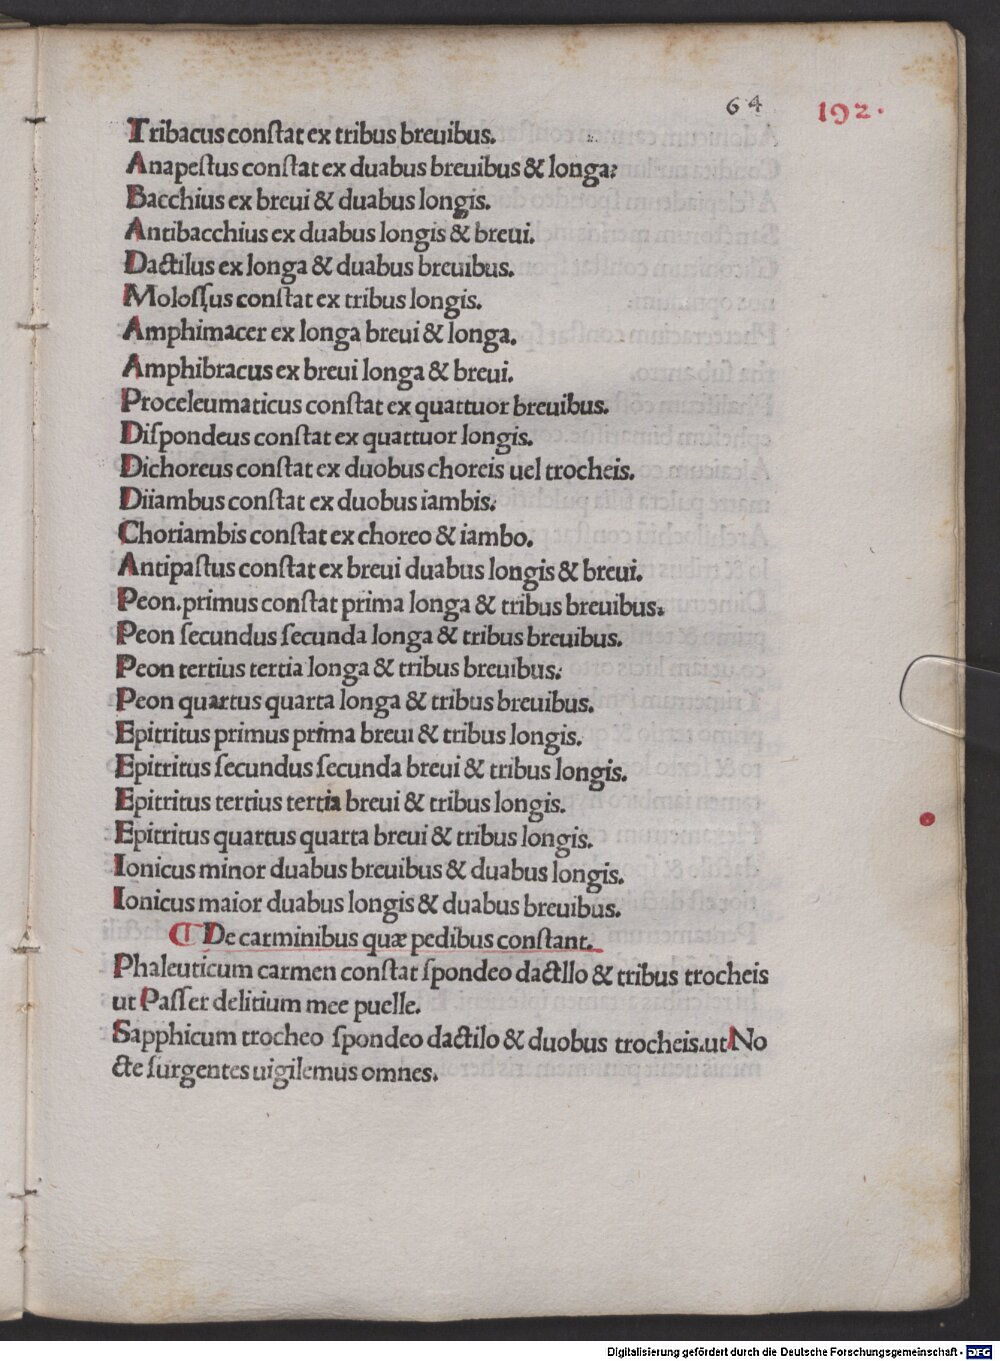 64 192.
Tribacus conſtat ex tribus breuibus.
Anapeſtus conſtat ex duabus breuibus & longa:
Bacchius ex breui & duabus longis.
Antibacchius ex duabus longis & breui.
Dactilus ex longa & duabus breuibus.
Moloſſus conſtat ex tribus longis.
Amphimacer ex longa breui & longa.
Amphibracus ex breui longa & breui.
Proceleumaticus conſtat ex quattuor breuibus.
Diſpondeus conſtat ex quattuor longis.
Dichoreus conſtat ex duobus choreis uel trocheis.
Diiambus conſtat ex duobus iambis:
Choriambis conſtat ex choreo & iambo.
Antipaſtus conſtat ex breui duabus longis & breui.
Peon.primus conſtat prima longa & tribus breuibus.
Peon ſecundus ſecunda longa & tribus breuibus.
Peon tertius tertia longa & tribus breuibus:
Peon quartus quarta longa & tribus breuibus.
Epitritus primus prima breui & tribus longis.
Epitritus ſecundus ſecunda breui & tribus longis.
Epitritus tertius tertia breui & tribus longis.
Epitritus quartus quarta breui & tribus longis.
Ionicus minor duabus breuibus & duabus longis.
Ionicus maior duabus longis & duabus breuibus.
¶ De carminibus quæ pedibus conſtant.
Phaleuticum carmen conſtat ſpondeo dactllo & tribus trocheis
ut Paſſer delitium mee puelle.
Sapphicum trocheo ſpondeo dactilo & duobus trocheis.ut No
cte ſurgentes uigilemus omnes.
Digitalisierung gefördert durch die Deutsche Forschungsgemeinschaft - DFG